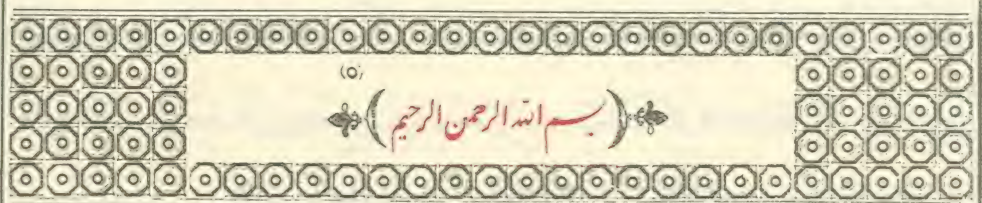 (٥)
(بسم الله الرحمن الرحيم)